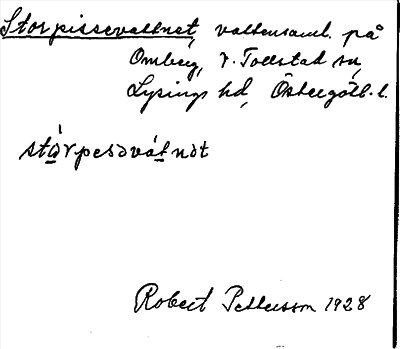 Storpissevattnet, vattensaml. på
Omberg, V. Tollstad sn,
Lysings hd, Östergötl. l.
stó̱rpesəvát̲nət
Robert Pettersson 1928